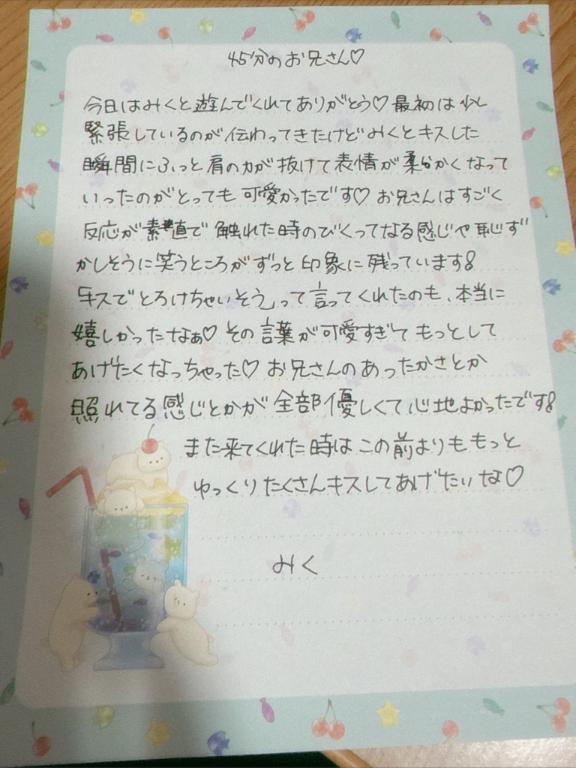 45分のお兄さん♡
今日はみくと遊んでくれてありがとう♡最初は少し
緊張しているのが伝わってきたけどみくとキスした
瞬間にふっと肩の力が抜けて表情が柔らかくなって
いったのがとっても可愛かったです♡お兄さんはすごく
反応が素直で触れた時のびくってなる感じや恥ず
かしそうに笑うところがずっと印象に残っています!
「キスでとろけちゃいそう」って言ってくれたのも、本当に
嬉しかったなぁ♡その言葉が可愛すぎてもっとして
あげたくなっちゃった♡お兄さんのあったかさとか
照れてる感じとかが全部優しくて心地よかったです!
また来てくれた時はこの前よりももっと
ゆっくりたくさんキスしてあげたいな♡
みく